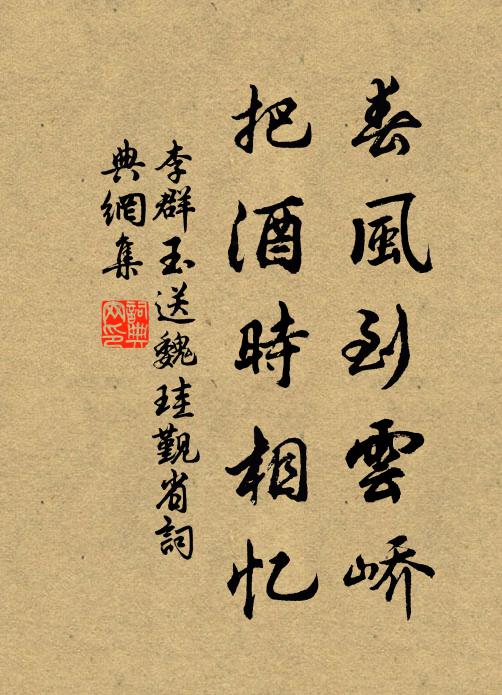 春風到雲峤
把酒時相忆
李群玉送魏珪觐省詞
典網集
詞典網印